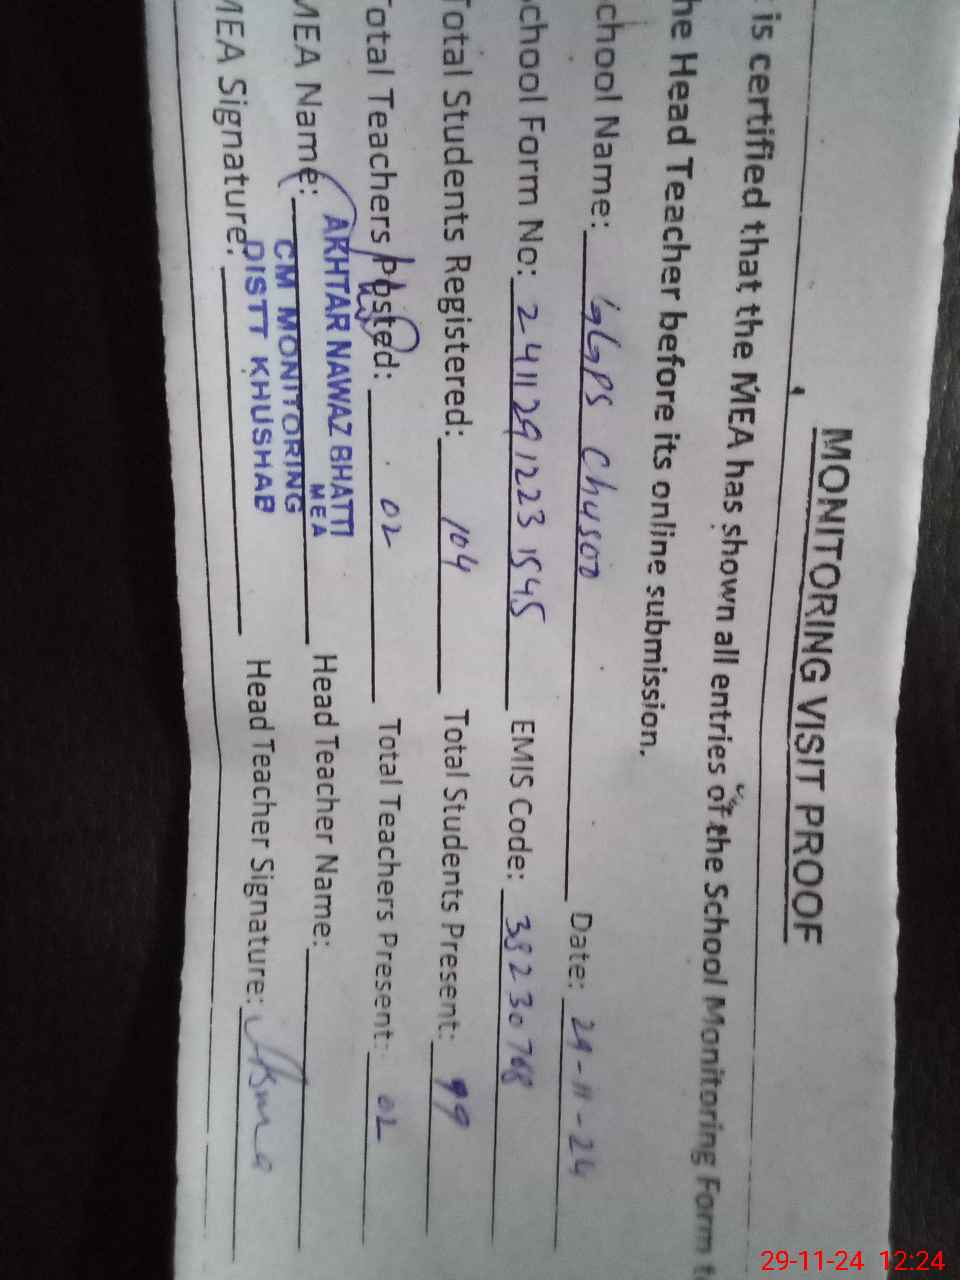 MONITORING VISIT PROOF
is certified that the MEA has shown all entries of the School Monitoring Form t
he Head Teacher before its online submission.
chool Name: GGPS Chusoo Date: 29-11-24
chool Form No: 2411291223 1545 EMIS Code: 38230768
Total Students Registered: 104 Total Students Present: 99
otal Teachers Posted: 02 Total Teachers Present: 02
MEA Name: AKHTAR NAWAZ BHATTI Head Teacher Name:
MEA
CM MONITORING
MEA Signature: DISTT KHUSHAB Head Teacher Signature: Asma
29-11-24 12:24